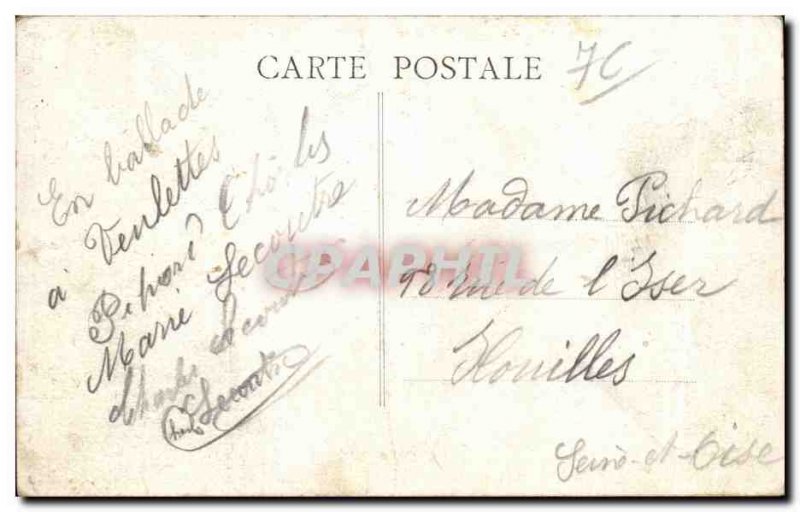 CARTE POSTALE
7C
En ballade
à Veulettes
Marie Lecoutre
Charles Lecoutre
Lecoutre
Madame Pichard
98 rue de l'Yser
Houilles
Seine-et-Oise
CPAPHIL